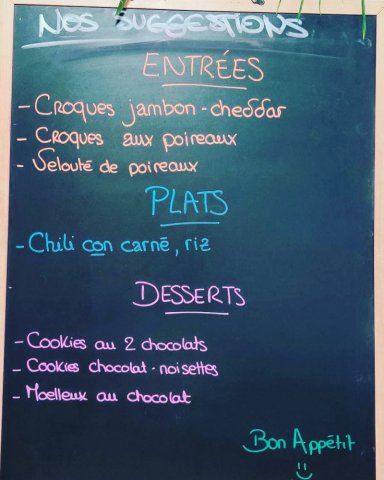 NOS SUGGESTIONS
ENTRÉES
- Croques jambon - cheddar
- Croques aux poireaux
- Velouté de poireaux
PLATS
- Chili con carné, riz
DESSERTS
- Cookies au 2 chocolats
- Cookies chocolat - noisettes
- Moelleux au chocolat
Bon Appétit